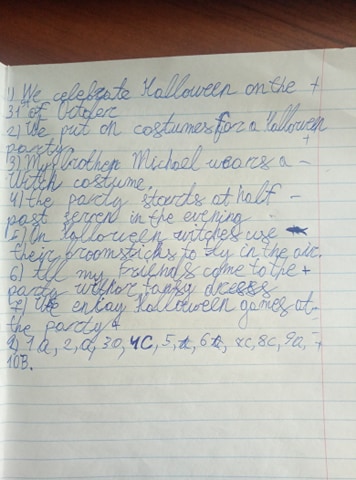 1) We celebrate Halloween on the +
31st of October
2) We put on costumes for a Halloween
party. +
3) My brother Michael wears a -
witch costume.
4) the party starts at half -
past seven in the evening
5) On Halloween witches use
their broomsticks to fly in the air.
6) All my friends come to the +
party in their fansy dresses
7) We enjay Halloween games at
the party +
1a, 2,a, 3a, 4C, 5, 6, 8c, 9a, +
10B.